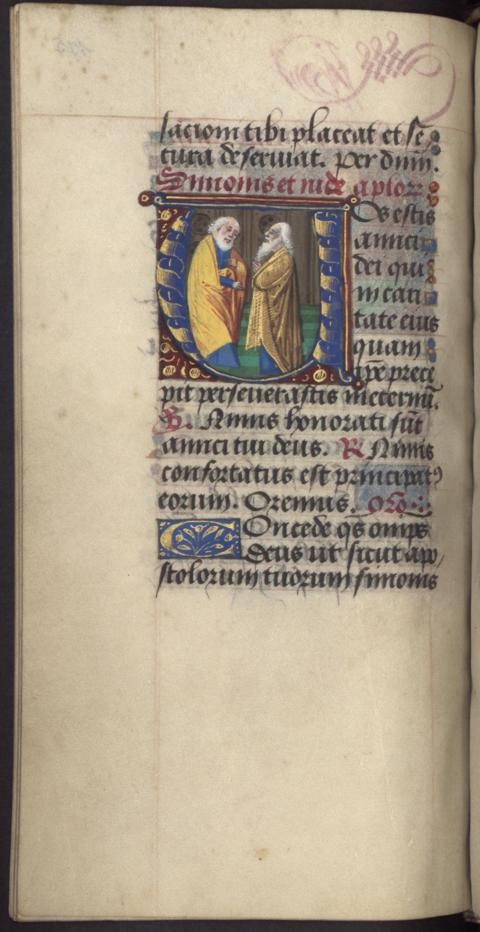 saciom tibi placeat et se
cura deseruiat. Per dnm̄.
Simonis et iude aplor̄
Uos estis
amici
dei qui
in cari
tate eius
quam
ap̄e prece
pit perseuerastis in eternū.
V. Nimis honorati sūt
amici tui deus. R Nimis
confortatus est principatꝰ
eorum. Oremus. oro.
Concede q̄s omps
deus ut sicut apo
stolorum tuorum simonis